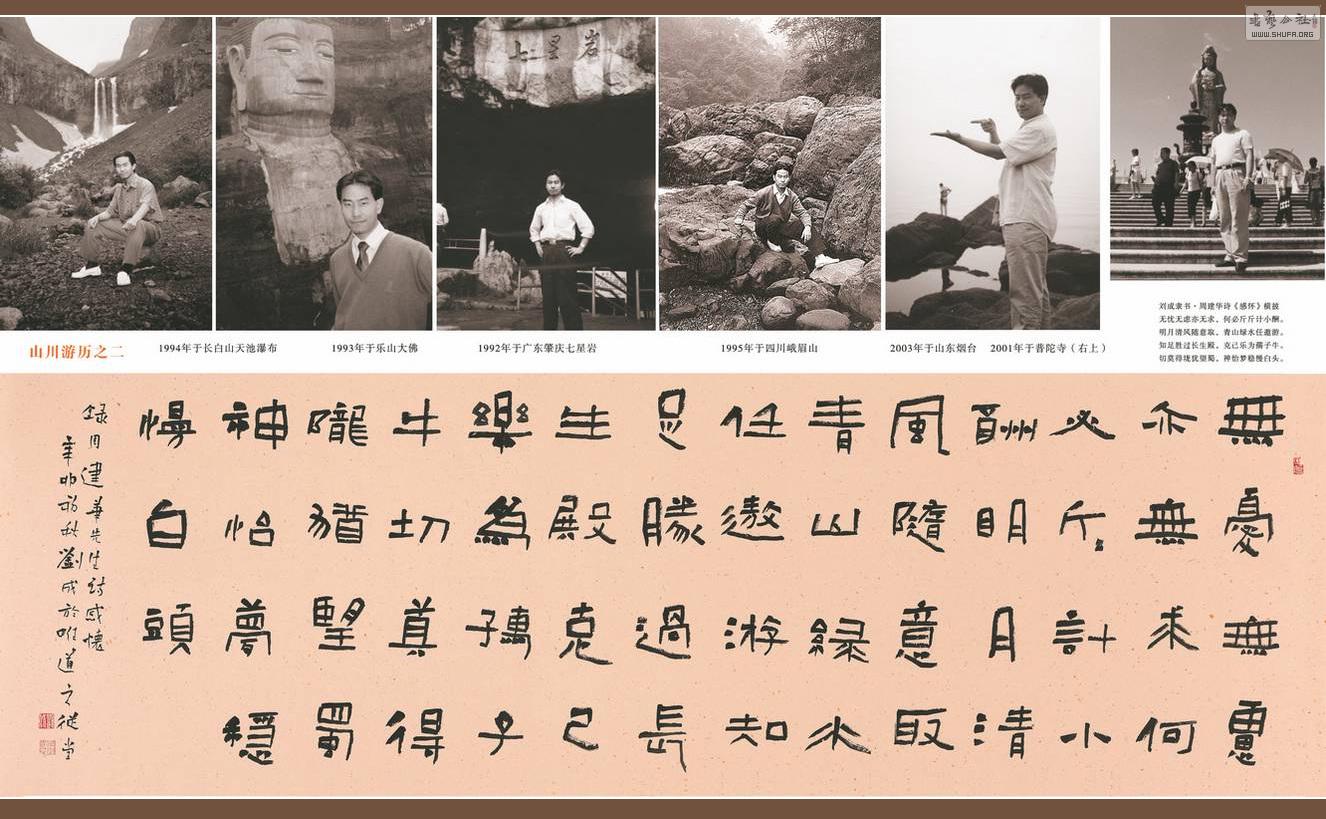 書藝公社
WWW.SHUFA.ORG
七星岩
山川游历之二
1994年于长白山天池瀑布
1993年于乐山大佛
1992年于广东肇庆七星岩
1995年于四川峨眉山
2003年于山东烟台
2001年于普陀寺（右上）
刘成隶书·周建华诗《感怀》横披
无忧无虑亦无求，何必斤斤计小酬。
明月清风随意取，青山绿水任遨游。
知足胜过长生殿，克己乐为孺子牛。
切莫得垅犹望蜀，神怡梦稳慢白头。
無憂無慮
亦無求何
必斤〻計小
酬明月清
風隨意取
青山緑水
任遨游知
足勝過長
生殿克己
樂爲孺子
牛切真得
隴猶望蜀
神怡夢穩
慢白頭
録周建華先生詩感懷
辛卯初秋劉成於唯道之從堂